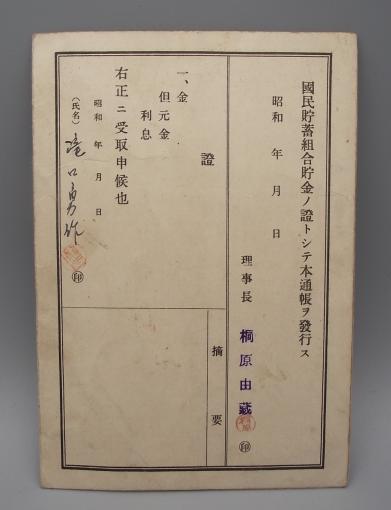 國民貯蓄組合貯金ノ證トシテ本通帳ヲ發行ス
昭和 年 月 日
理事長 桐原由藏 ㊞
摘要
證
一、金
但元金
利息
右正ニ受取申候也
昭和 年 月 日
(氏名) 滝口勇作 ㊞